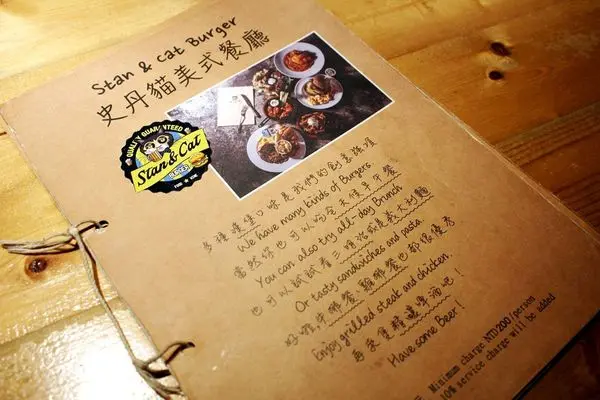 Stan & Cat Burger
史丹貓美式餐廳
QUALITY GUARANTEED
Stan & Cat
多種漢堡口味是我們的創意發揮
We have many kinds of Burgers
當然你也可以約全天候早午餐
You can also try all-day Brunch
也可以試試看三明治或是義大利麵
Or tasty sandwiches and pasta
好評牛排餐雞排餐也都很優秀
Enjoy grilled steak and chicken.
再來隻精釀啤酒吧！
Have some Beer!
Minimum charge NTD200/person
10% service charge will be added